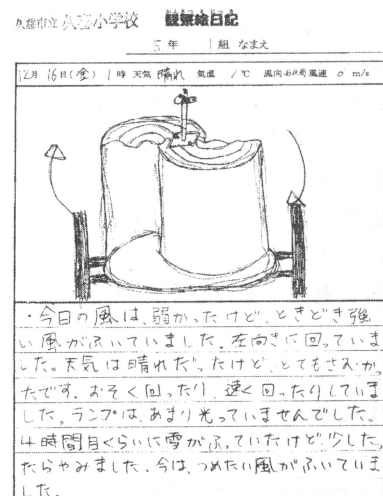 久喜市立 久喜小学校 観察絵日記
5年 1組 なまえ
12月16日(金) 1時 天気 晴れ 気温 1℃ 風向 風速 0 m/s
・今日の風は、弱かったけど、ときどき強
い風がふいていました。左向きに回っていま
した。天気は晴れだったけど、とてもさむかっ
たです。おそく回ったり、速く回ったりしていま
した。ランプは、あまり光っていませんでした。
4時間目くらいに雪がふっていたけど、少した
ったらやみました。今は、つめたい風がふいていま
した。